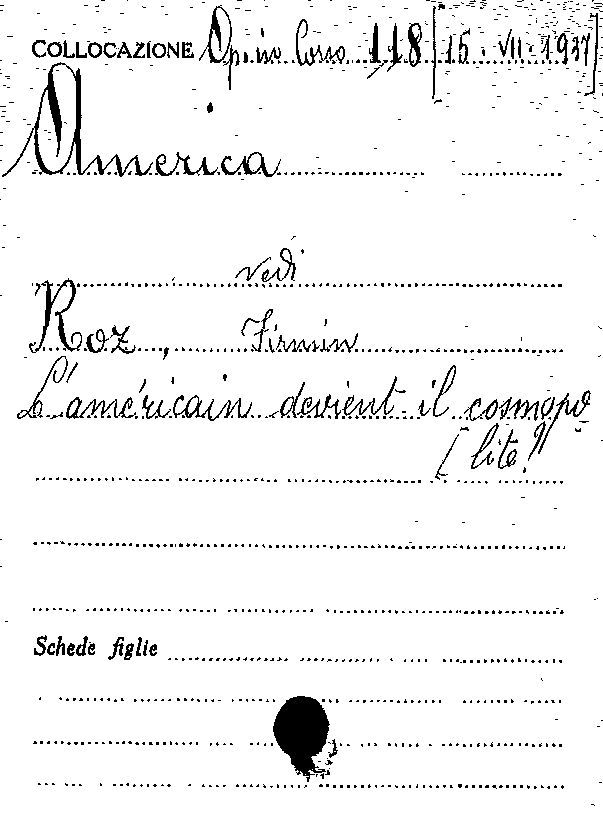 COLLOCAZIONE Op. in Corso 118 [15. VII. 1937]
America
vedi
Roz, Firmin
L'américain devient il cosmopo
[lite?"
Schede figlie